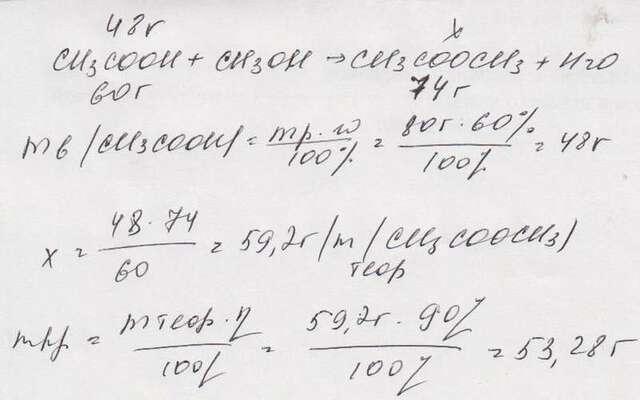 48г x
CH3COOH + CH3OH → CH3COOCH3 + H2O
60г 74г
mв (CH3COOH) = mр · w / 100% = 80г · 60% / 100% = 48г
x = 48 · 74 / 60 = 59,2г (m теор (CH3COOCH3)
mпр = mтеор · η / 100% = 59,2г · 90% / 100% = 53,28г